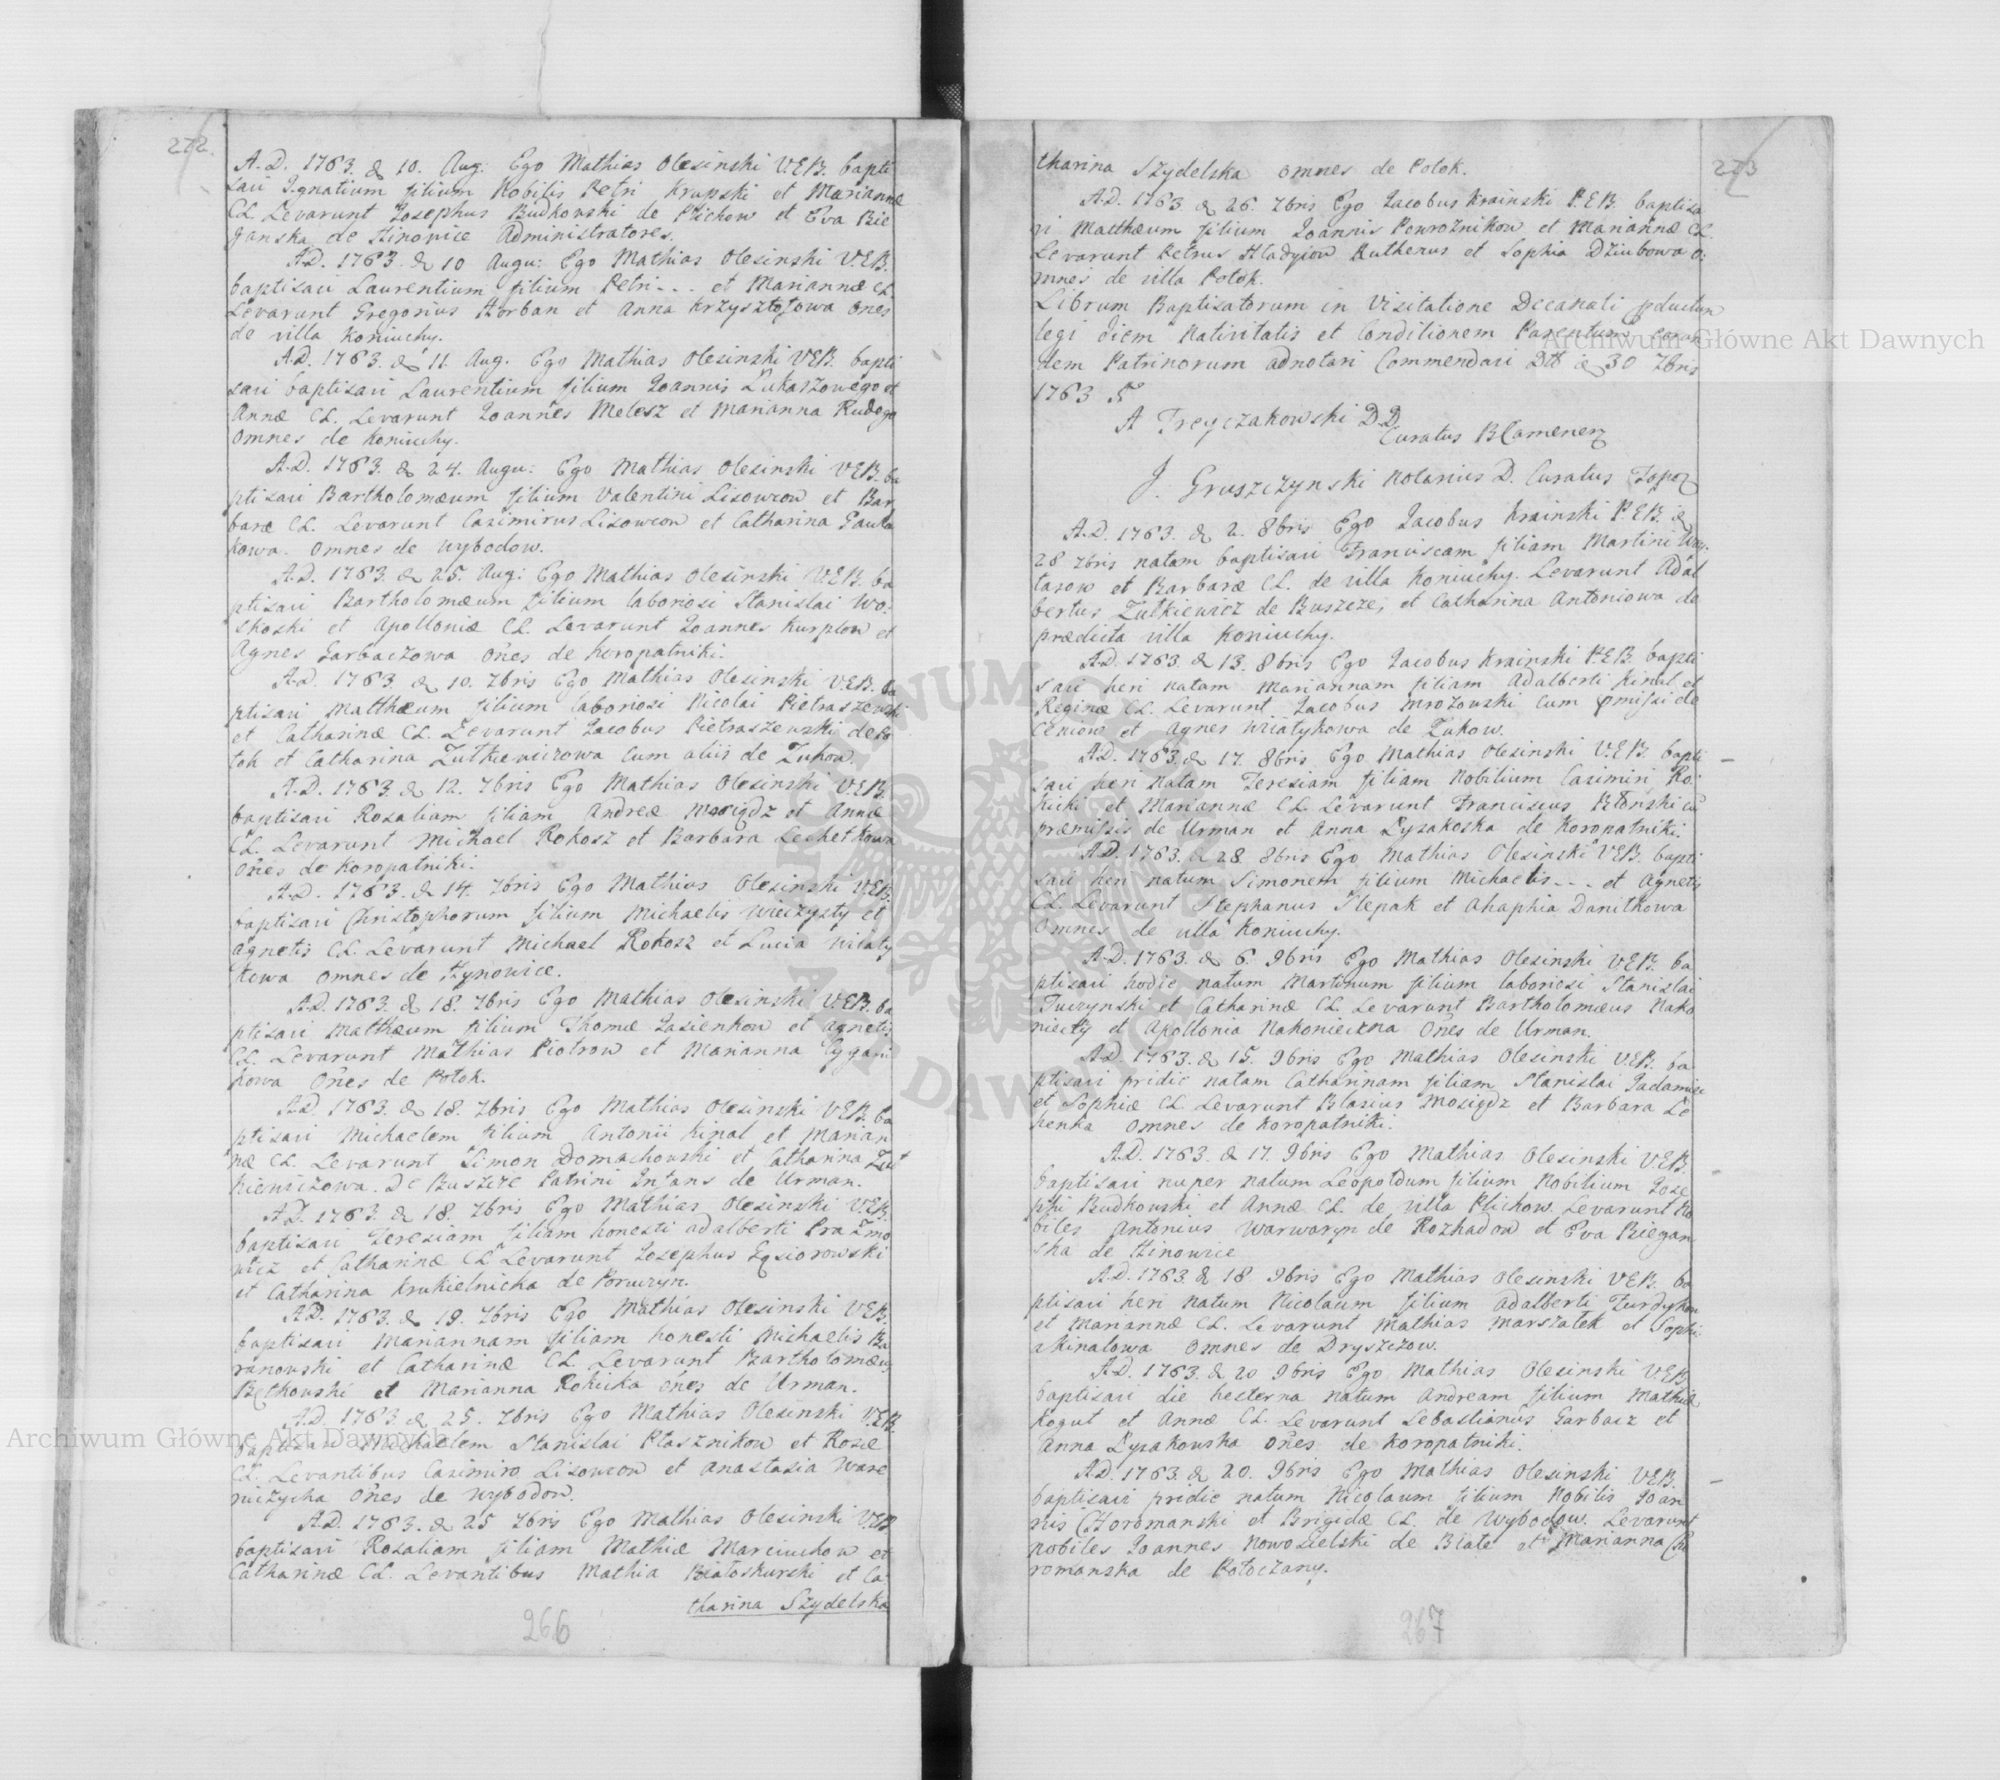 272.
A.D. 1763. d. 10. Aug: Ego Mathias Olesinski V.E.B. bapti
savi Ignatium filium Nobilis Petri Krupski et Mariannæ
CL. Levarunt Josephus Budkovski de Plichow et Eva Bie
ganska de Hinovice Administratores.
A.D. 1763. d. 10 Augu: Ego Mathias Olesinski V.E.B.
baptisavi Laurentium filium Petri - - - et Mariannæ CL.
Levarunt Gregorius Horban et Anna Krzysztofowa Oñes
de villa Koniuchy.
A.D. 1763. d. 11. Aug. Ego Mathias Olesinski V.E.B. bapti
savi baptisavi Laurentium filium Joannis Łukaszowego et
Annæ CL. Levarunt Joannes Melesz et Marianna Rudego
omnes de Koniuchy.
A.D. 1763. d. 24. Augu: Ego Mathias Olesinski V.E.B. ba
ptisavi Bartholomæum filium Valentini Lisowcow et Bar
baræ CL. Levarunt Casimirus Lisowcow et Catharina Paula
kowa. omnes de Wybodow.
A.D. 1763. d. 25. Aug: Ego Mathias Olesinski V.E.B. ba
ptisavi Bartholomæum filium laboriosi Stanislai Wo-
skoski et Apolloniæ CL. Levarunt Joannes Kurplow et
Agnes Garbaczowa Oñes de Koropatniki.
A.D. 1763. d. 10. 7bris Ego Mathias Olesinski V.E.B. ba
ptisavi Matthæum filium laboriosi Nicolai Pietraszewski
et Catharinæ CL. Levarunt Jacobus Pietraszewski de Po
tok et Catharina Zutkiewiczowa cum aliis de Zukow.
A.D. 1763. d. 12. 7bris Ego Mathias Olesinski V.E.B.
baptisavi Rosaliam filiam Andreæ Mosiądz et Annæ
CL. Levarunt Michael Rokosz et Barbara Lechetkowa
Oñes de Koropatniki.
A.D. 1763. d. 14. 7bris Ego Mathias Olesinski V.E.B.
baptisavi Christophorum filium Michaelis Wieczysty et
Agnetis CL. Levarunt Michael Rokosz et Lucia Wiaty
kowa omnes de Hynowice.
A.D. 1763. d. 18. 7bris Ego Mathias Olesinski V.E.B. ba
ptisavi Matthæum filium Thomæ Jasienkow et Agnetis
CL. Levarunt Mathias Piotrow et Marianna Cygani
kowa Oñes de Potok.
A.D. 1763. d. 18. 7bris Ego Mathias Olesinski V.E.B. ba
ptisavi Michaelem filium Antonii Kinal et Marian
næ CL. Levarunt Simon Domachowski et Catharina Zut
kiewiczowa. De Buszcze Patrini Infans de Urman.
A.D. 1763. d. 18. 7bris Ego Mathias Olesinski V.E.B.
baptisavi Teresiam filiam honesti Adalberti Prazmo
wicz et Catharinæ CL Levarunt Josephus Gąsiorowski
et Catharina Krukielnicka de Poruczyn.
A.D. 1763. d. 19. 7bris Ego Mathias Olesinski V.E.B.
baptisavi Mariannam filiam honesti Michaelis Ba
ranowski et Catharinæ CL. Levarunt Bartholomæus
Bętkowski et Marianna Rokicka Oñes de Urman.
A.D. 1763. d. 25. 7bris Ego Mathias Olesinski V.E.B.
baptisavi Michaelem Stanislai Ptasznikow et Rosæ
CL. Levantibus Casimiro Lisowcow et Anastasia Ware
niczycha Oñes de Wybodow.
A.D. 1763. d. 25 7bris Ego Mathias Olesinski V.E.B
baptisavi Rosaliam filiam Mathiæ Marciuchow et
Catharinæ CL. Levantibus Mathia Białoskurski et Ca-
tharina Szydelska
266
273
tharina Szydelska omnes de Potok.
A.D. 1763. d. 26. 7bris Ego Jacobus Krainski P.E.B. baptisa
vi Matthæum filium Joannis Powroznikow et Mariannæ CL.
Levarunt Petrus Hladyiow Ruthenus et Sophia Dziubowa o-
mnes de villa Potok.
Librum Baptisatorum in Visitatione Decanali pductum
legi diem Nativitatis et Conditionem Parentum
dem Patrinorum adnotari Commendavi Dtt d. 30 7bris
1763
A Treyczakowski D.D.
Curatus
J. Gruszczynski Notarius D. Curatus
A.D. 1763. d. 2. 8bris Ego Jacobus Krainski P.E.B. d.
28 7bris natam baptisavi Franciscam filiam Martini
tasow et Barbaræ CL. de villa Koniuchy. Levarunt Adal
bertus Zutkiewicz de Buszcze, et Catharina Antoniowa de
prædicta villa Koniuchy.
A.D. 1763. d. 13. 8bris Ego Jacobus Krainski P.E.B. bapti
savi heri natam Mariannam filiam Adalberti Kinal et
Reginæ CL. Levarunt Jacobus Mrozowski cum pmissi de
Ceniow et Agnes Wiatykowa de Zukow.
A.D. 1763. d. 17. 8bris Ego Mathias Olesinski V.E.B. bapti
savi heri natam Teresiam filiam Nobilium Casimiri Ro-
kicki et Mariannæ CL. Levarunt Franciscus Błonski cũ
præmissis de Urman et Anna Łysakoska de Koropatniki.
A.D. 1763. d. 28. 8bris Ego Mathias Olesinski V.E.B. bapti
savi heri natum Simonem filium Michaelis - - - et Agnetis
CL. Levarunt Stephanus Slepak et Ahaphia Danitkowa
omnes de villa Koniuchy.
A.D. 1763. d. 6. 9bris Ego Mathias Olesinski V.E.B. ba
ptisavi hodie natum Martinum filium laboriosi Stanislai
Tuczynski et Catharinæ CL. Levarunt Bartholomæus Nako
niecky et Apollonia Nakonieczna Oñes de Urman.
A.D. 1763. d. 15. 9bris Ego Mathias Olesinski V.E.B. ba
ptisavi pridie natam Catharinam filiam Stanislai
et Sophiæ CL. Levarunt Blasius Mosiądz et Barbara Le
henka omnes de Koropatniki.
A.D. 1763. d. 17. 9bris Ego Mathias Olesinski V.E.B.
baptisavi nuper natum Leopoldum filium Nobilium Jose
phi Budkowski et Annæ CL. de villa Plichow. Levarunt No
biles Antonius Warwaryn de Rozhadow et Eva Biegan
ska de Hinowice
A.D. 1763. d. 18 9bris Ego Mathias Olesinski V.E.B. ba
ptisavi heri natum Nicolaum filium Adalberti Zurdykow
et Mariannæ CL. Levarunt Mathias Marszałek et Sophi
a Kinalowa omnes de Dryszczow.
A.D. 1763. d. 20 9bris Ego Mathias Olesinski V.E.B
baptisavi die hesterna natum Andream filium Mathiæ
Kogut et Annæ CL. Levarunt Sebastianus Garbacz et
Anna Łysakowska Oñes de Koropatniki.
A.D. 1763. d. 20. 9bris Ego Mathias Olesinski V.E.B.
baptisavi pridie natum Nicolaum filium Nobilis Joan
nis Choromanski et Brigidæ CL. de Wybodow. Levarunt
nobiles Joannes Nowosielski de Biale et Marianna Cho
romanska de Potoczany.
267
Archiwum Główne Akt Dawnych
Archiwum Główne Akt Dawnych